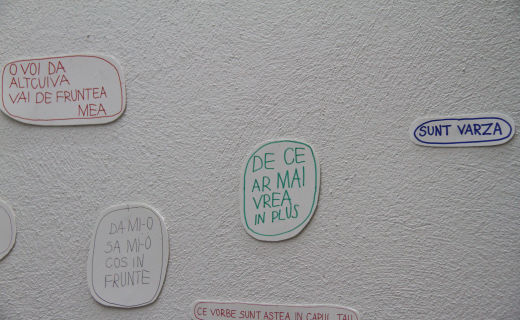 O VOI DA
ALTCUIVA
VAI DE FRUNTEA
MEA
SUNT VARZA
DE CE
AR MAI
VREA
IN PLUS
DA MI-O
SA MI-O
COS IN
FRUNTE
CE VORBE SUNT ASTEA IN CAPUL TAU